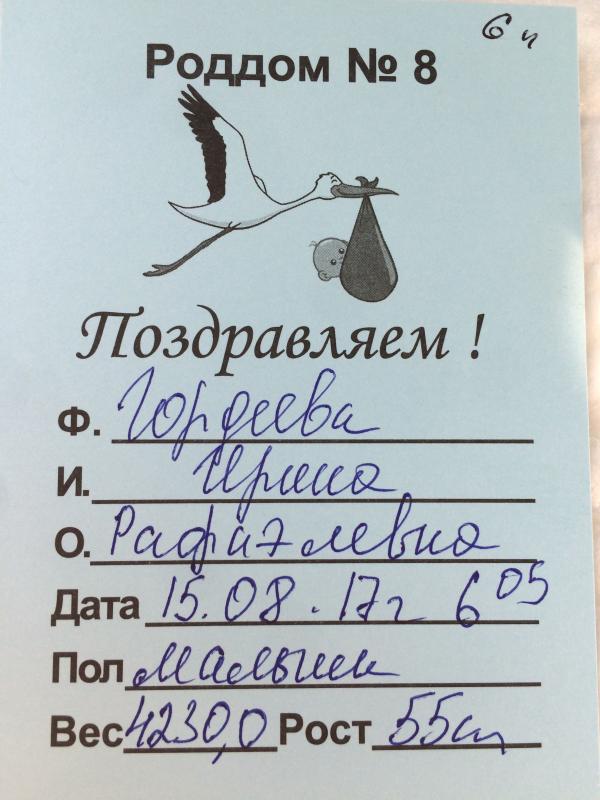 6 ч
Роддом № 8
Поздравляем !
Ф. Гордеева
И. Ирина
О. Рафаэлевна
Дата 15.08.17г 6 05
Пол мальчик
Вес 4230,0 Рост 55см